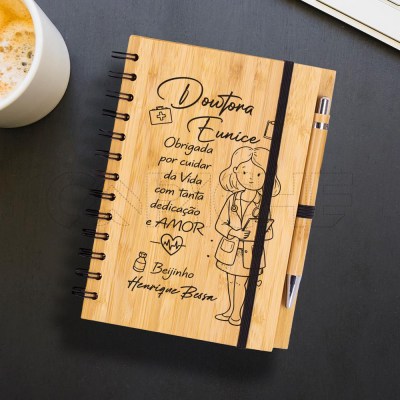 Dowtora
Eunice
Obrigada
por cuidar
da Vida
com tanta
dedicação
e AMOR
Beijinho
Henrique Bessa